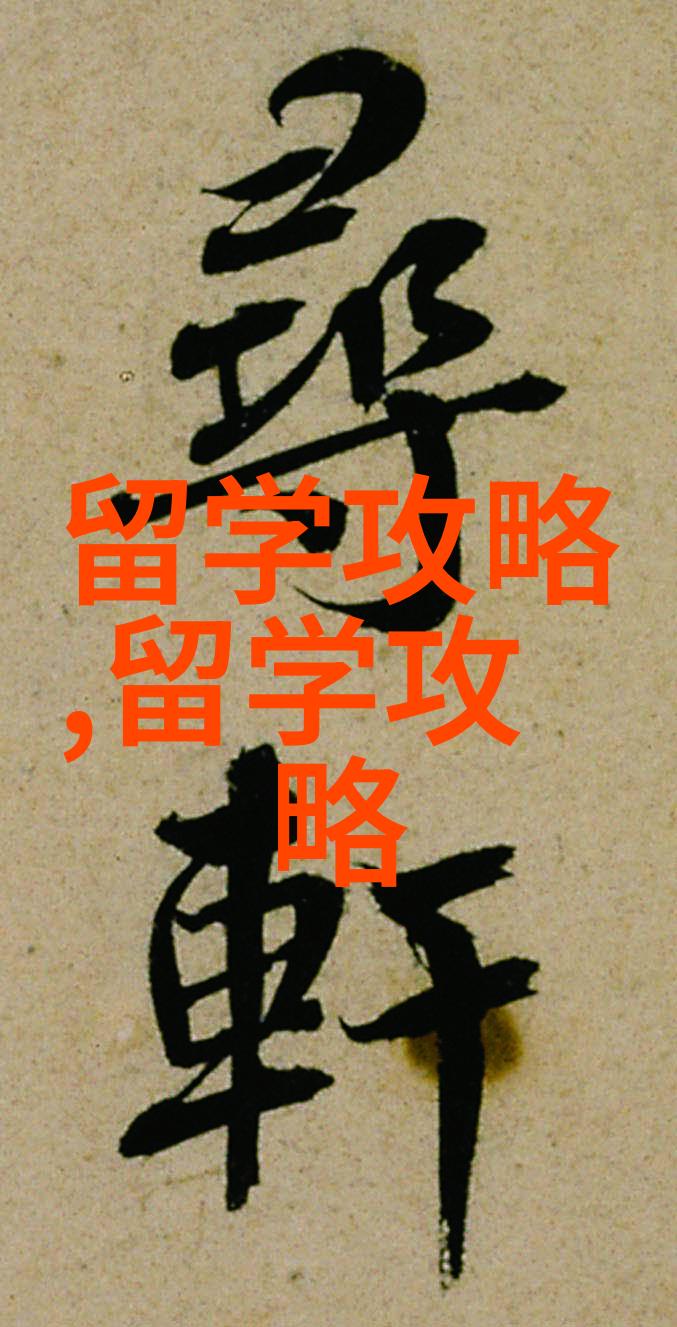 尋
留学攻略
,留学攻
略
軒